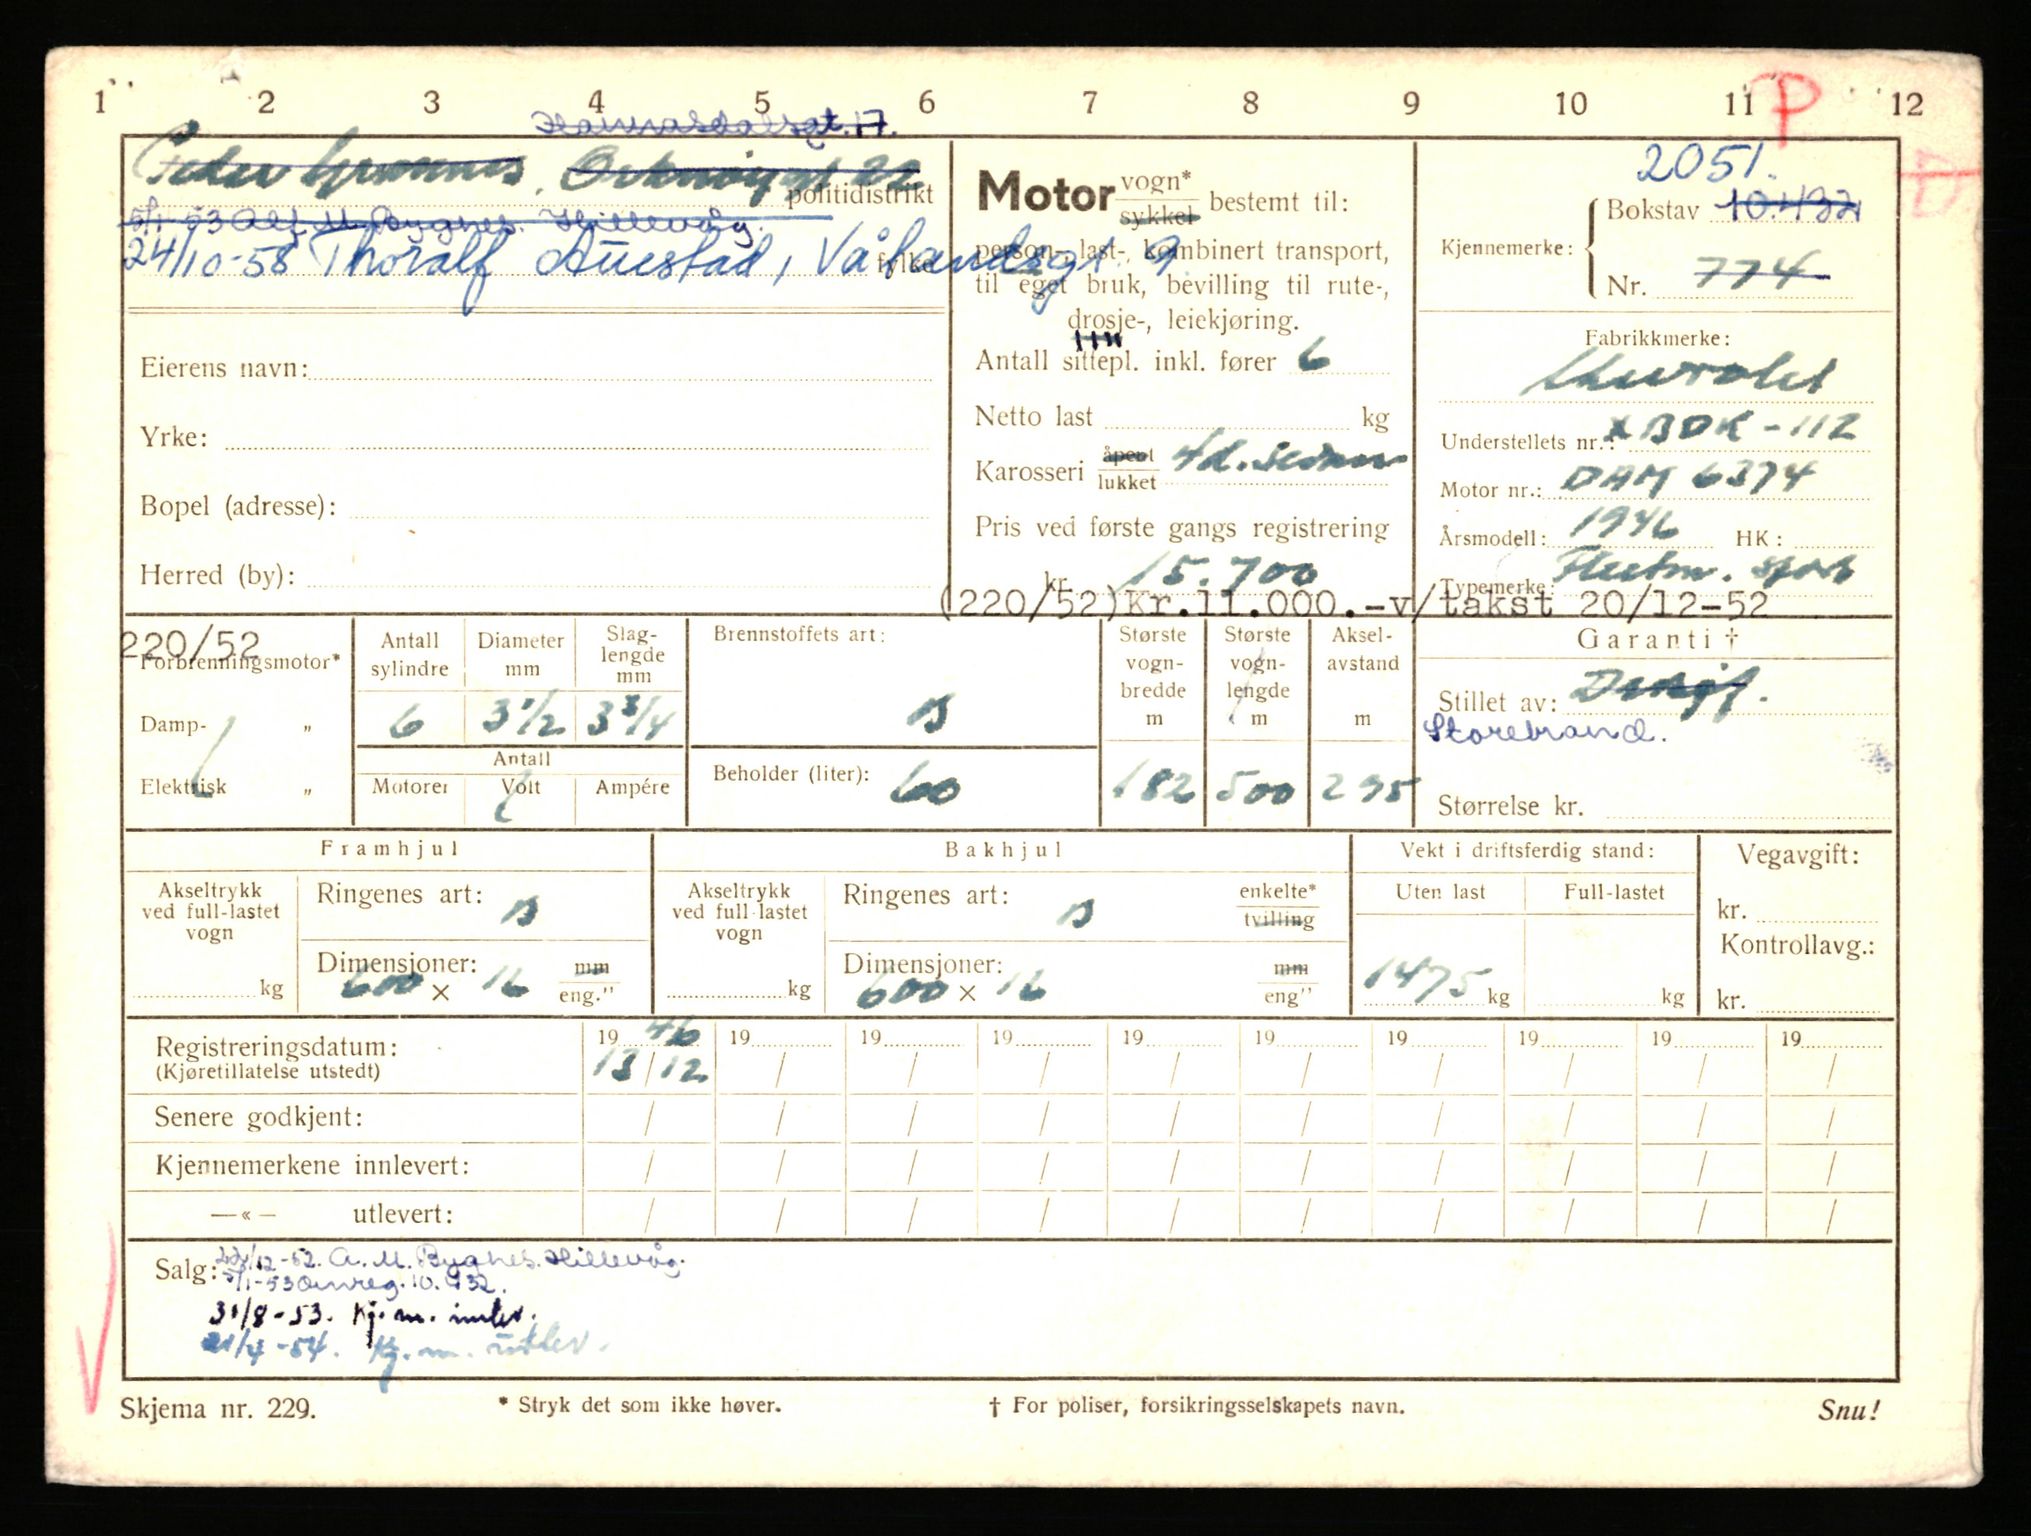 1 2 3 4 5 6 7 8 9 10 11 P 12
gt. 17.
Peder politidistrikt
5/1 53 Alf M. Byghes. Hillevåg.
24/10-58 Thoralf Auestad, Vålandsgt. 9 fylke
Eierens navn:
Yrke:
Bopel (adresse):
Herred (by):
Motor vogn* sykkel bestemt til:
person-, last-, kombinert transport,
til eget bruk, bevilling til rute-,
drosje-, leiekjøring.
Antall sittepl. inkl. fører 6
Netto last kg
Karosseri åpent lukket 4d. sedan
Pris ved første gangs registrering
kr. 15.700
(220/52)Kr.11.000.-v/takst 20/12-52
2051.
Kjennemerke: Bokstav 10.432
Nr. 774
D
Fabrikkmerke:
Chevrolet
Understellets nr.: xBDK-112
Motor nr.: DAM 6374
Årsmodell: 1946 HK:
Typemerke: Fleetm. sport
220/52
Forbrenningsmotor*
Damp- „
Elektrisk „
Antall sylindre Diameter mm Slag-lengde mm
6 3 1/2 3 3/4
Antall
Motorer Volt Ampére
Brennstoffets art:
B
Beholder (liter): 60
Største vogn-bredde m Største vogn-lengde m Aksel-avstand m
182 500 295
Garanti †
Stillet av:
Storebrand.
Størrelse kr.
Framhjul
Akseltrykk ved full-lastet vogn
kg
Ringenes art: B
Dimensjoner: 600 × 16 mm eng."
Bakhjul
Akseltrykk ved full-lastet vogn
kg
Ringenes art: B enkelte* tvilling
Dimensjoner: 600 × 16 mm eng"
Vekt i driftsferdig stand:
Uten last Full-lastet
1475 kg kg
Vegavgift:
kr.
Kontrollavg.:
kr.
Registreringsdatum: 19 46 19 19 19 19 19 19 19 19 19
(Kjøretillatelse utstedt) 13/12 / / / / / / / / /
Senere godkjent: / / / / / / / / / /
Kjennemerkene innlevert: / / / / / / / / / /
—«— utlevert: / / / / / / / / / /
Salg: /12-52. A. M. Byghes. Hillevåg.
5/1-53 Omreg. 10.432.
31/8-53. Kj.m. innlev.
21/4-54. Kj.m. utlev.
Skjema nr. 229. * Stryk det som ikke høver. † For poliser, forsikringsselskapets navn. Snu!